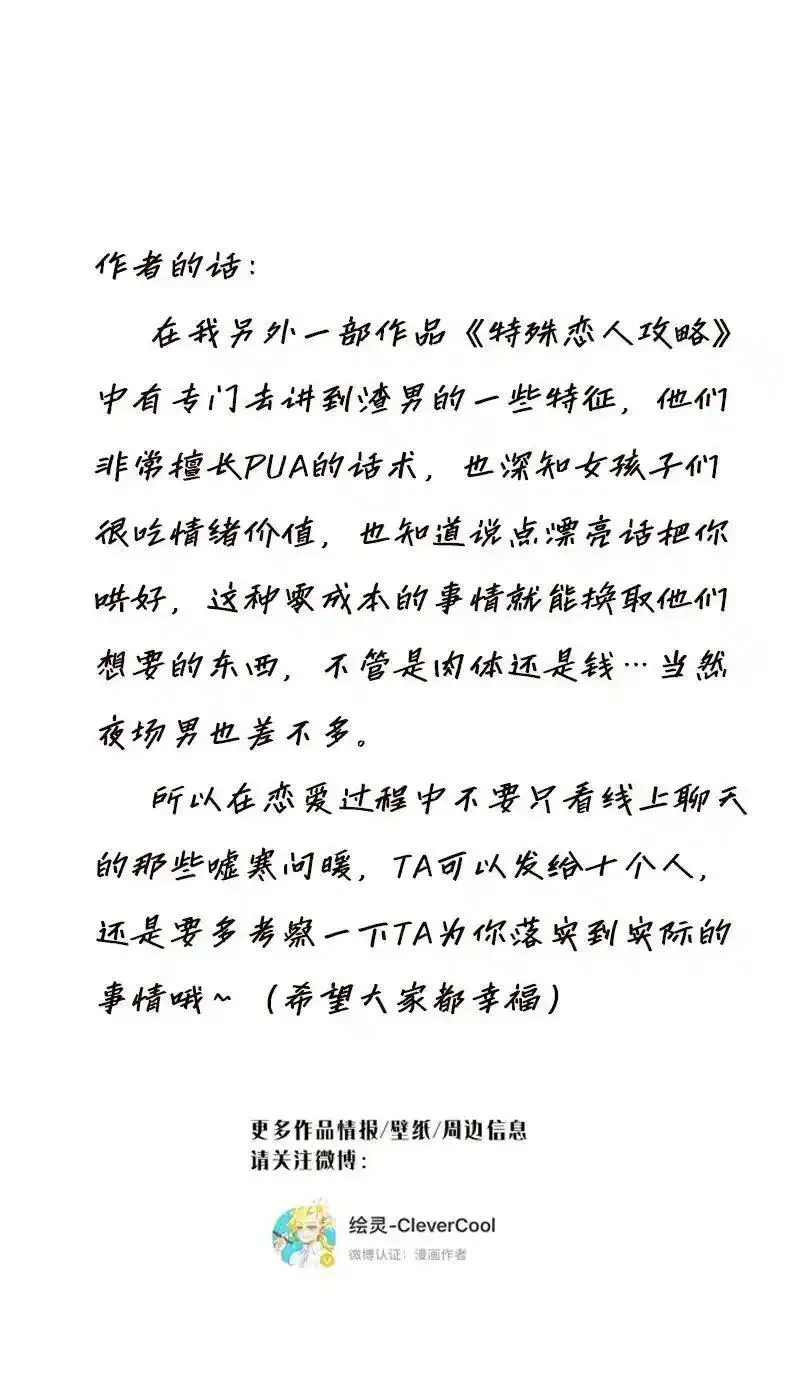 作者的话：
在我另外一部作品《特殊恋人攻略》
中有专门去讲到渣男的一些特征，他们
非常擅长PUA的话术，也深知女孩子们
很吃情绪价值，也知道说点漂亮话把你
哄好，这种零成本的事情就能换取他们
想要的东西，不管是肉体还是钱…当然
夜场男也差不多。
所以在恋爱过程中不要只看线上聊天
的那些嘘寒问暖，TA可以发给十个人，
还是要多考察一下TA为你落实到实际的
事情哦~（希望大家都幸福）
更多作品情报/壁纸/周边信息
请关注微博：
绘灵-CleverCool
微博认证：漫画作者